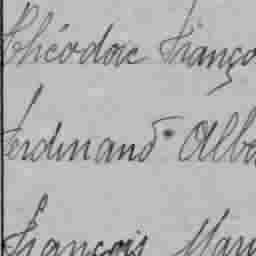 Théodore Franço
Ferdinand Albe
François Mari